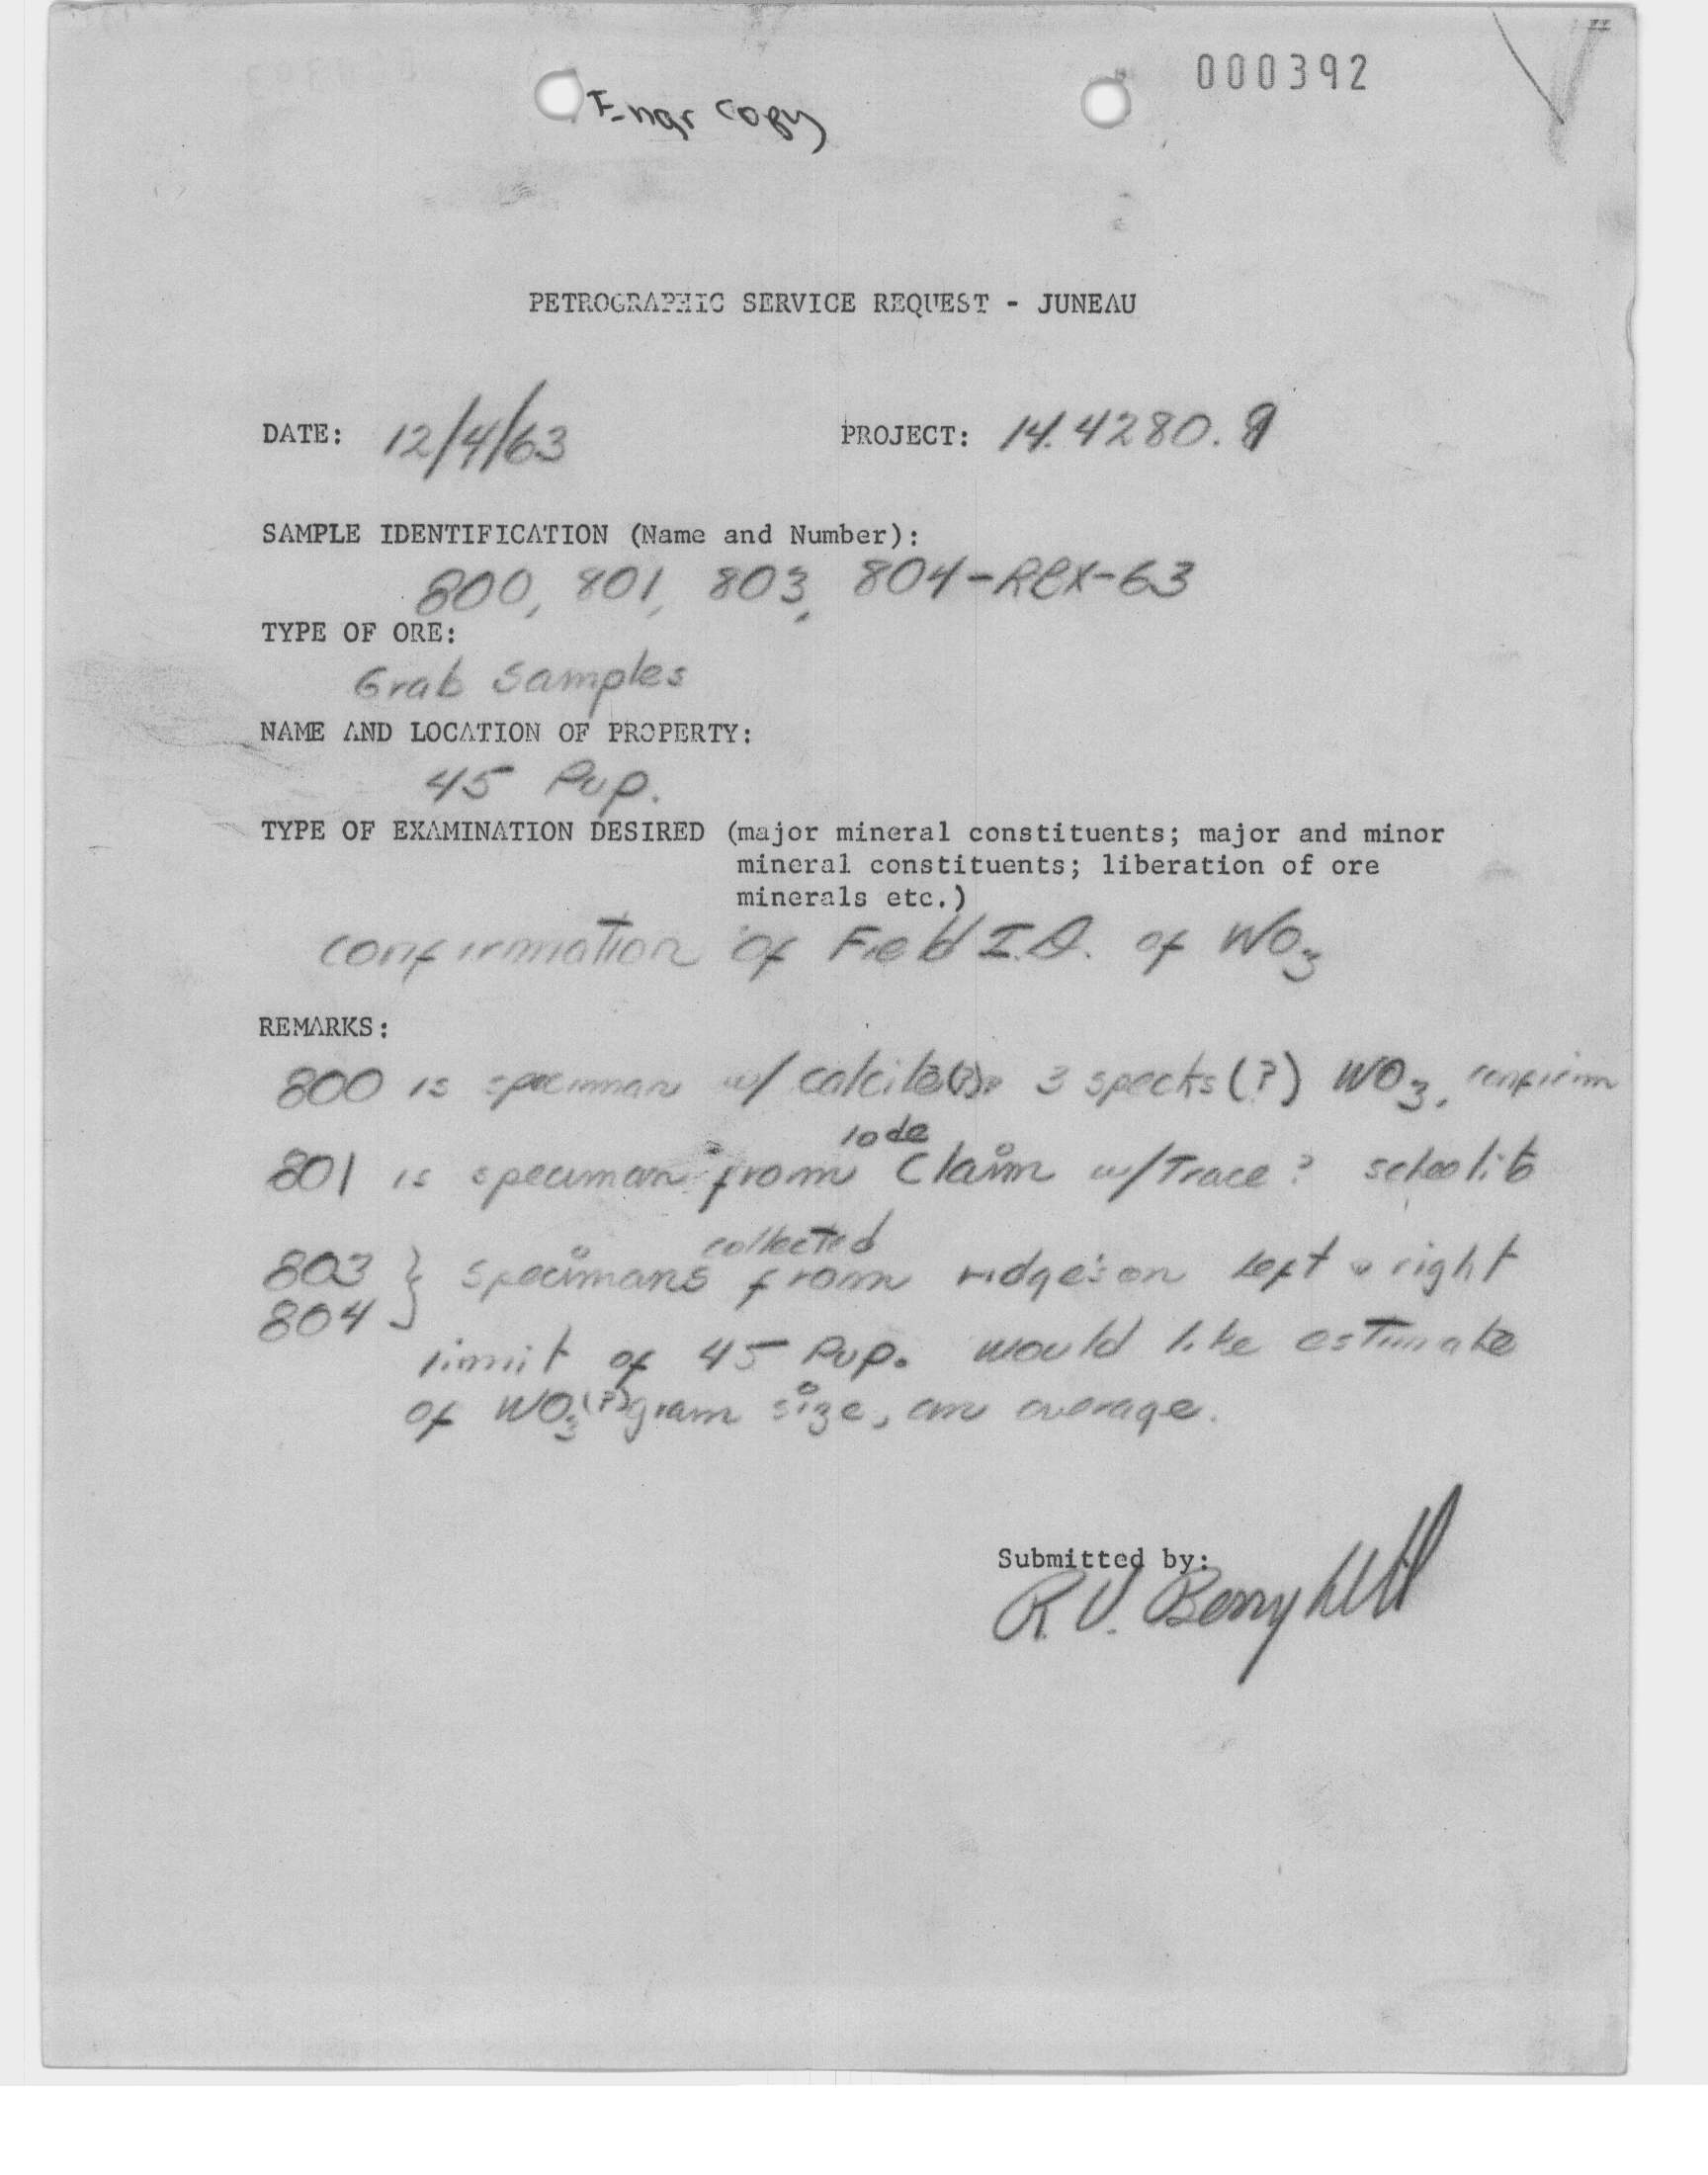 000392
Engr copy
PETROGRAPHIC SERVICE REQUEST - JUNEAU
DATE: 12/4/63 PROJECT: 14.4280.9
SAMPLE IDENTIFICATION (Name and Number):
800, 801, 803, 804-Rex-63
TYPE OF ORE:
Grab Samples
NAME AND LOCATION OF PROPERTY:
45 Pup.
TYPE OF EXAMINATION DESIRED (major mineral constituents; major and minor
mineral constituents; liberation of ore
minerals etc.)
confirmation of Field I.D. of WO3
REMARKS:
800 is speciman w/ calcite(?) 3 specks(?) WO3, confirm
801 is speciman from lode Claim w/Trace? scheelite
803 } specimans collected from ridges on left & right
804
limit of 45 Pup. would like estimate
of WO3(?) grain size, on average.
Submitted by:
R.V. Berryhill